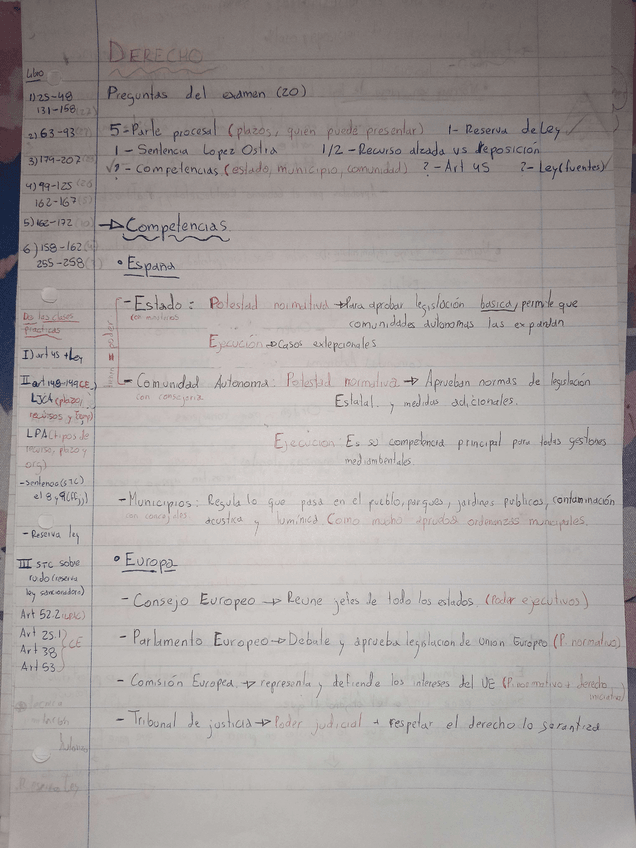 DERECHO
Preguntas del examen (20)
5 - Parte procesal (plazos, quien puede presentar) 1 - Reserva de Ley
1 - Sentencia Lopez Ostra 1/2 - Recurso alzada vs reposición
? - Competencias (estado, municipio, comunidad) ? - Art 45 ? - Ley (fuentes)
→ Competencias
• España
- Estado: Potestad normativa → Para aprobar legislación basica, permite que
con ministerios
comunidades autonomas las expandan
Ejecución → Casos exlepcionales
- Comunidad Autonoma: Potestad normativa → Aprueban normas de legislación
con consejeria
Estatal y medidas adicionales.
Ejecución: Es su competencia principal para todas gestiones
mediambentales.
- Municipios: Regula lo que pasa en el pueblo, parques, jardines publicos, contaminación
con concejales
acustica y lumínica Como mucho aprueban ordenanzas municipales.
• Europa
- Consejo Europeo → Reune jefes de todo los estados (Poder ejecutivos)
- Parlamento Europeo → Debate y aprueba legislacion de union Europeo (P. normativo)
- Comisión Europea → representa y defiende los intereses del UE (P. normativo + derecho
iniciativa)
- Tribunal de justicia → Poder judicial + respetar el derecho lo garantiza
Libro
1) 25-48
131-158
2) 63-93
3) 179-207
4) 99-125
162-167
5) 162-172
6) 158-162
255-258
De las clases
practicas
I) art 45 + Ley
II art 148-149 CE
LJCA (plazo,
recursos y org)
LPA (tipos de
recurso, plazo y
org)
- Sentencia (STC)
el 8 y 9 (FFJJ)
- Reserva ley
III STC sobre
ruido (reserva
ley sancionadora)
Art 52.2
Art 25.1
Art 38 } CE
Art 53